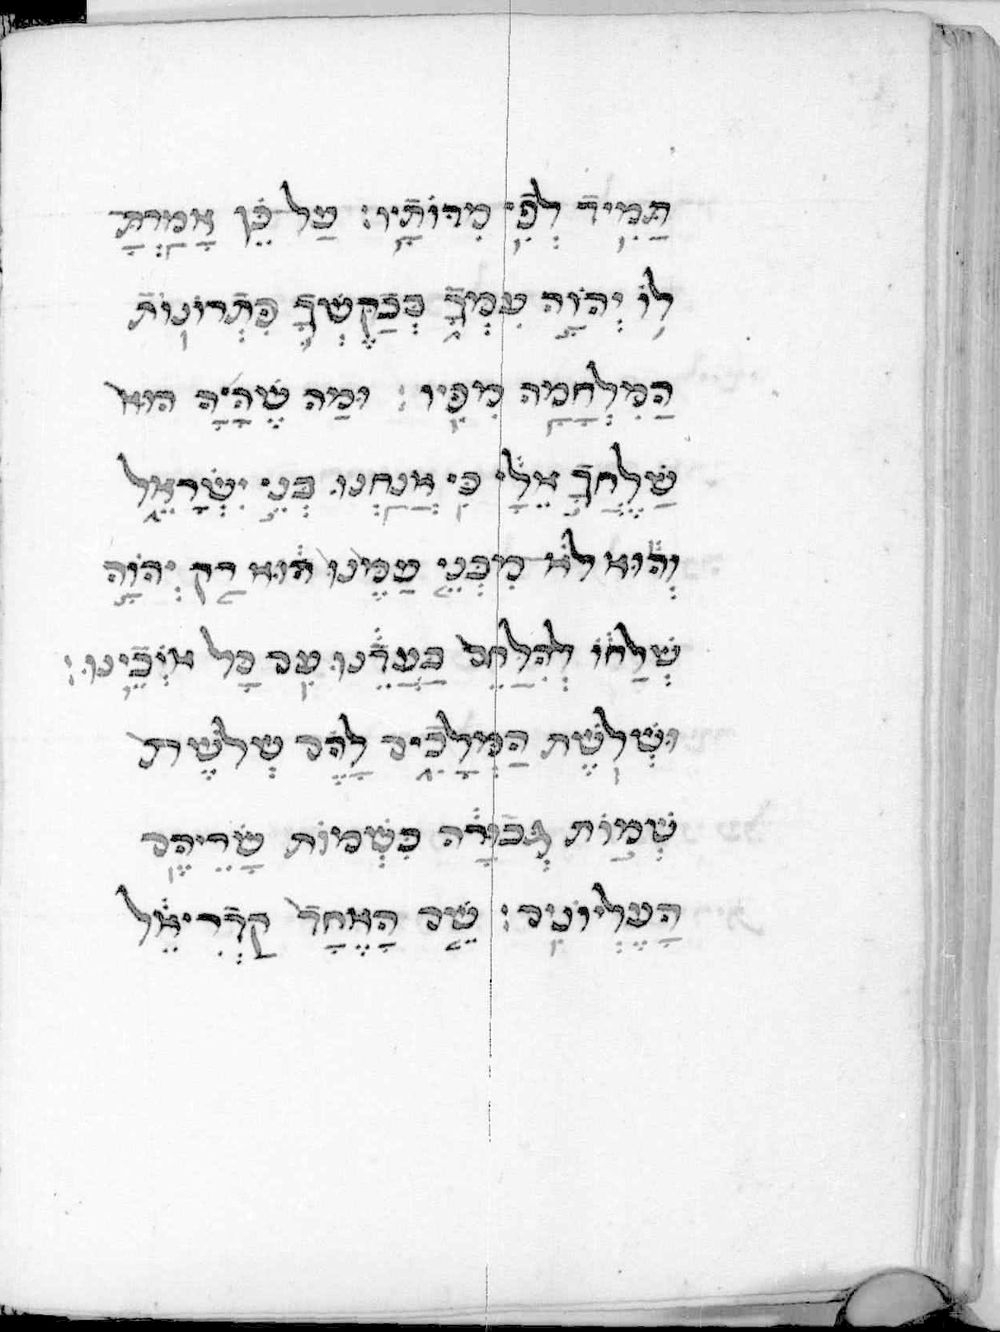 תַּמִיד לְפִי מִדּוֹתָיו: עַל כֵּן אָמַרְתָּ
לוֹ יְהוָֹה עִמְּךָ בְּבַקֶּשְׁךָ פִּתְרוֹנוֹת
הַמִּלְחָמָה מִפִּיו: וּמַה שֶּׁהָיָה הוּא
שַׁלֶּחֲךָ אֵלָי כִּי אֲנַחְנוּ בְּנֵי יִשְׂרָאֵל
וְהוּא לֹא מִבְּנֵי עַמֵּנוּ הוּא רַק יְהוָֹה
שְׁלָחוֹ לְהִלָּחֶם בַּעֲדֵנוּ עִם כָּל אוֹיְבֵינוּ:
וּשְׁלֹשֶׁת הַמְּלָכִים לָהֶם שְׁלֹשֶׁת
שְׁמוֹת גְּבוּרָה כִּשְׁמוֹת שָׂרֵיהֶם
הָעֶלְיוֹנִים: שֵׁם הָאֶחָד קַדְרִיאֵל